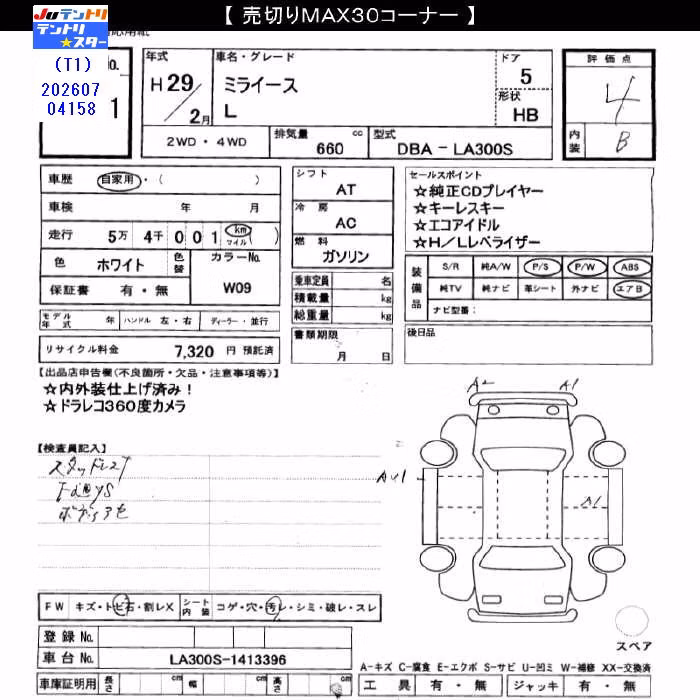 【 売切りMAX30コーナー 】
JUテントリ
テントリ★スター
応用紙
(T1)
202607
04158
No.
1
年式 H 29 / 2月
車名・グレード
ミライース
L
ドア 5
形状 HB
評価点 4
内装 B
2WD・4WD 排気量 660 cc 型式 DBA - LA300S
車歴 自家用・( )
車検 年 月
走行 5万 4千 0 0 1 km マイル ( )
色 ホワイト 色替 カラーNo.
W09
保証書 有・無
モデル年式 年 ハンドル 左・右 ディーラー・並行
リサイクル料金 7,320 円 預託済
シフト AT
冷房 AC
燃料 ガソリン
乗車定員 名
積載量 kg
総重量 kg
書類期限
月 日
セールスポイント
☆純正CDプレイヤー
☆キーレスキー
☆エコアイドル
☆H/Lレベライザー
装備品 S/R 純A/W P/S P/W ABS
純TV 純ナビ 革シート 外ナビ エアB
ナビ型番:
後日品
【出品店申告欄(不良箇所・欠品・注意事項等)】
☆内外装仕上げ済み!
☆ドラレコ360度カメラ
【検査員記入】
スタッドレス
ボディ
A2 A1
A1
FW キズ・トビ石・割レX シート内装 コゲ・穴・汚レ・シミ・破レ・スレ
登録No.
車台No. LA300S-1413396
車庫証明用 長さ cm 幅 cm 高さ cm
スペア
A-キズ C-腐食 E-エクボ S-サビ U-凹ミ W-補修 XX-交換済
工具 有・無 ジャッキ 有・無